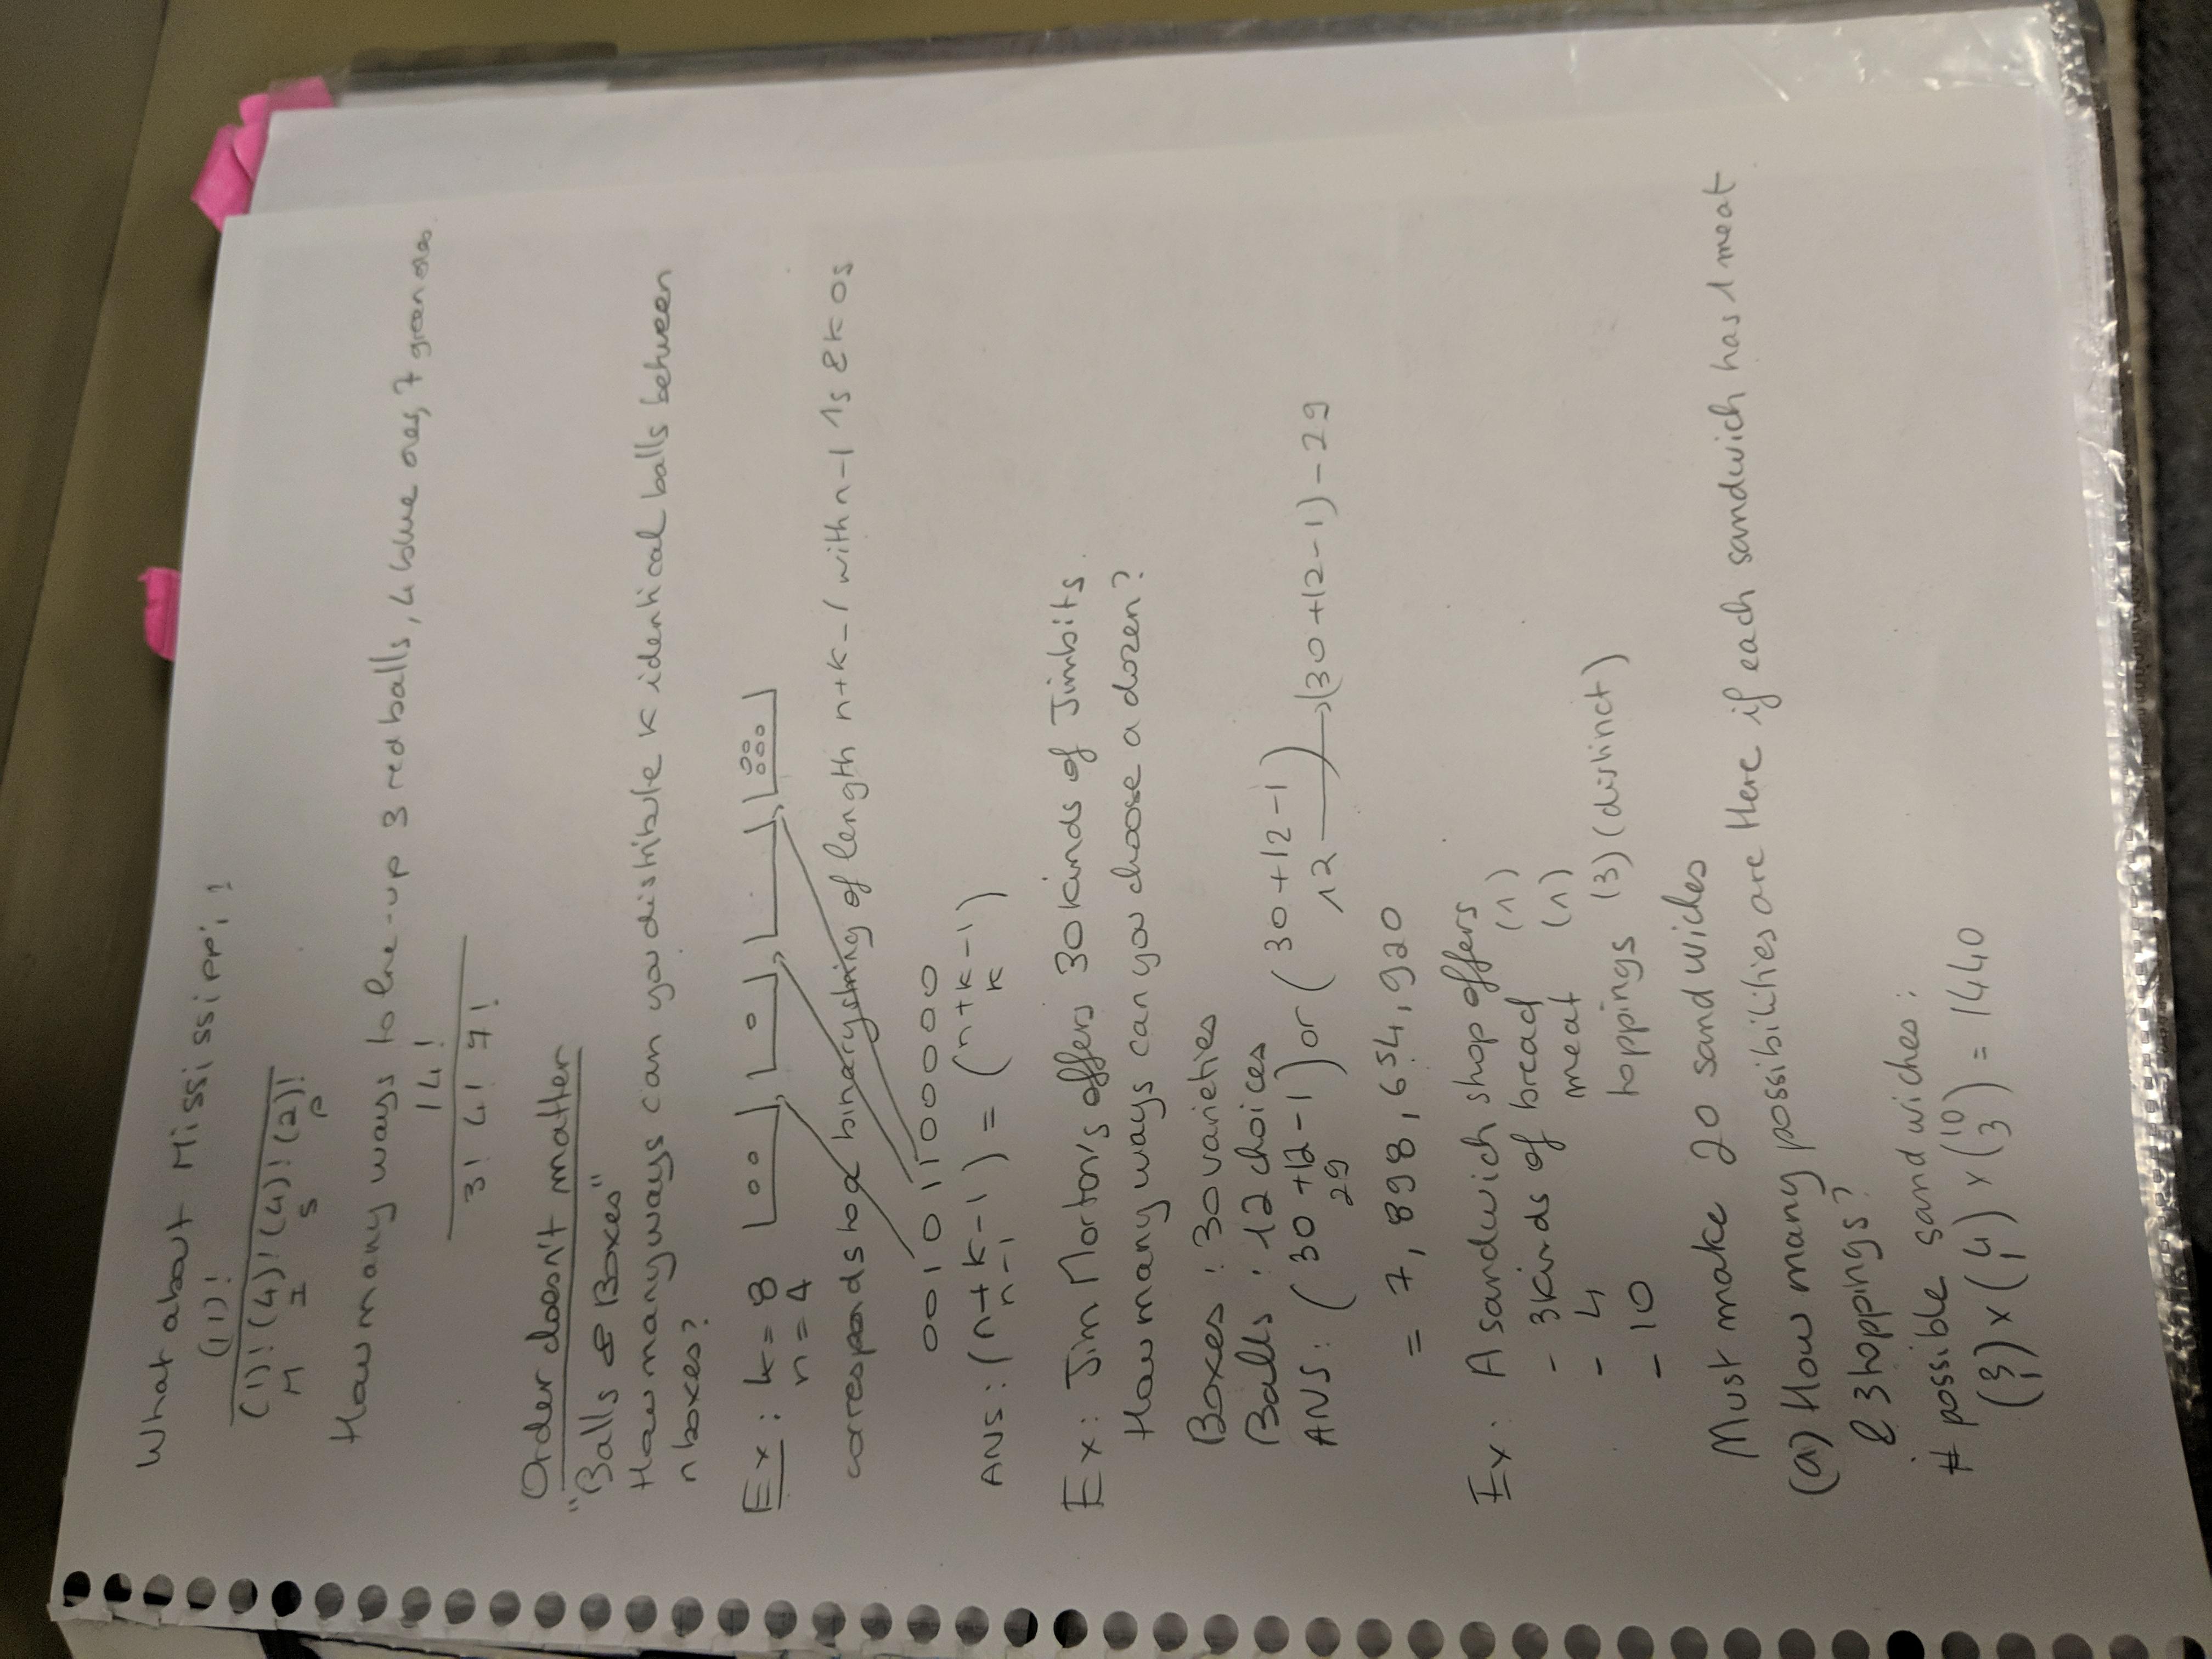 What about Mississippi?
(11)!
(1)! (4)! (4)! (2)!
M I S P
How many ways to line-up 3 red balls, 4 blue ones, 7 green ones.
14!
3! 4! 7!
Order doesn't matter
"Balls & Boxes"
How many ways can you distribute k identical balls between
n boxes?
Ex: k = 8
n = 4
corresponds to a binary string of length n+k-1 with n-1 1s & k 0s
00101100000
ANS: (n+k-1 n-1) = (n+k-1 k)
Ex: Jim Morton's offers 30 kinds of Jimbits.
How many ways can you choose a dozen?
Boxes: 30 varieties
Balls: 12 choices
ANS: (30+12-1 29) or (30+12-1 12) → (30+12-1)-29
= 7,898,654,920
Ex: A sandwich shop offers
- 3 kinds of bread (1)
- 4 meat (1)
- 10 toppings (3) (distinct)
Must make 20 sandwiches
(a) How many possibilities are there if each sandwich has 1 meat
& 3 toppings?
# possible sandwiches:
(3 1) x (4 1) x (10 3) = 1440